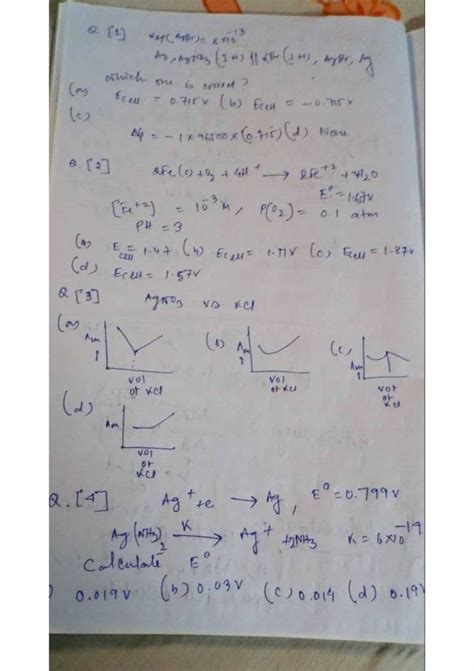 Q.[1] Ksp(AgBr) = 8×10⁻¹³
Ag, AgNO₃ (1M) || KBr (1M), AgBr, Ag
which one is correct?
(a) Ecell = 0.715 V (b) Ecell = -0.715 V
(c) ΔG = -1×96500×(0.715) (d) None
Q.[2] 2Fe(s) + O₂ + 4H⁺ → 2Fe⁺² + 2H₂O
E° = 1.67V
[Fe⁺²] = 10⁻³ M, P(O₂) = 0.1 atm
PH = 3
(a) Ecell = 1.47 (b) Ecell = 1.77V (c) Ecell = 1.87V
(d) Ecell = 1.57V
Q.[3] AgNO₃ vs KCl
(a)
(b)
(c)
Λm
vol of KCl
Λm
vol of KCl
Λm
vol of KCl
(d)
Λm
vol of KCl
Q.[4] Ag⁺ + e → Ag, E° = 0.799V
Ag(NH₃)₂ K → Ag⁺ + 2NH₃ K = 6×10⁻¹⁴
Calculate E°
) 0.019V (b) 0.03V (c) 0.014 (d) 0.19V